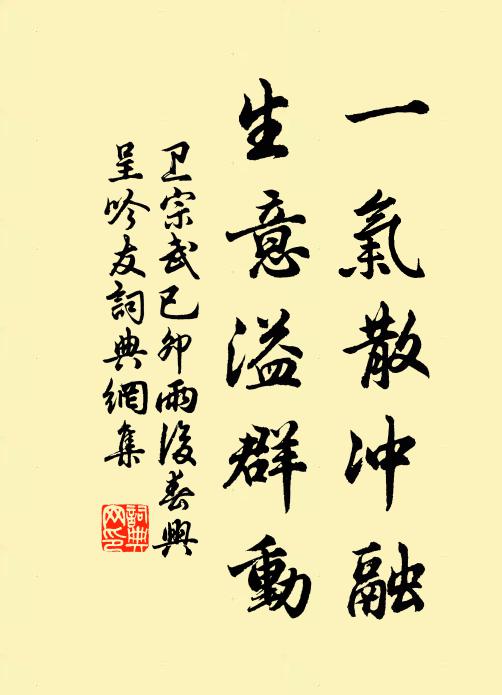 一氣散沖融
生意溢群動
卫宗武己卯雨後春興
呈吟友詞典網集
詞典
网印